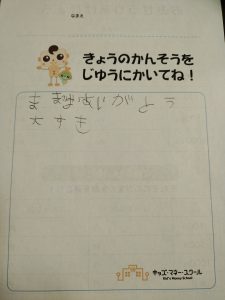 なまえ
きょうのかんそうを
じゆうにかいてね!
大すき
キッズ・マネー・スクール
Kid's Money School